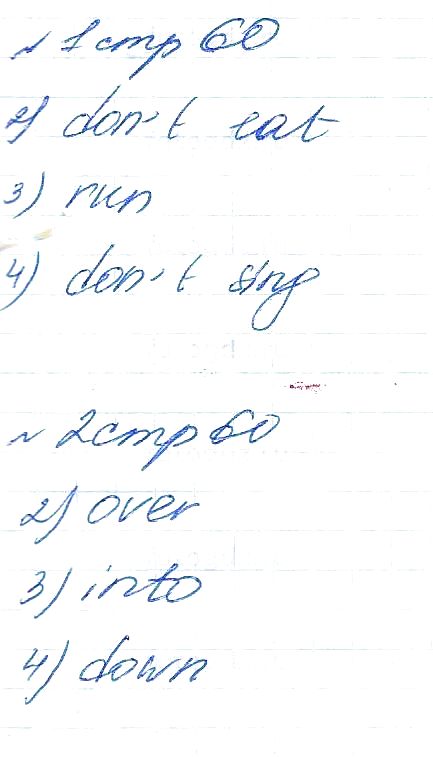 № 1 стр 60
2) don't eat
3) run
4) don't sing
№ 2 стр 60
2) over
3) into
4) down